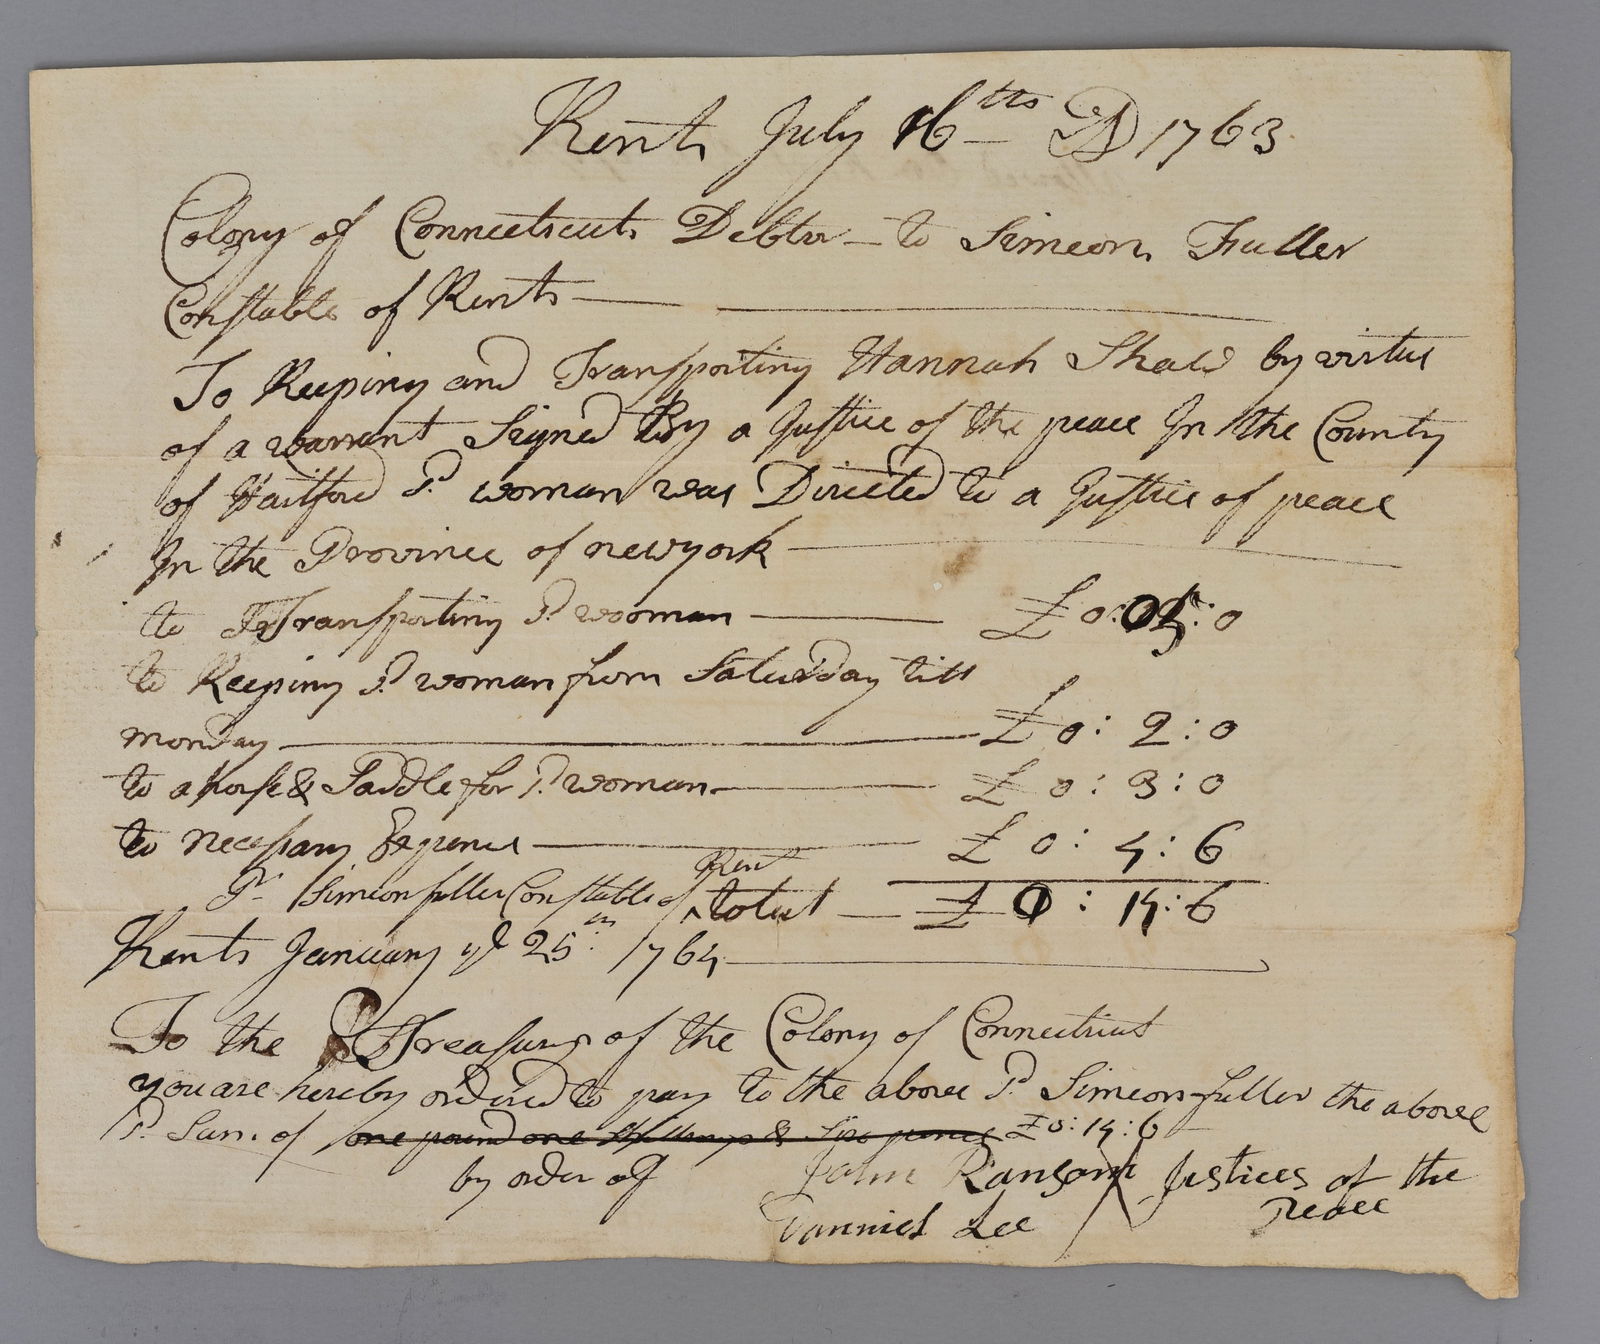 Kent July 16th AD 1763
Colony of Connecticut Debtor to Simeon Fuller
Constable of Kent
To Keeping and Transporting Hannah Shaw by virtue
of a warrant Signed By a Justice of the peace In the County
of Hartford sd woman was Directed to a Justice of peace
In the Province of newyork
to Transporting sd wooman £0:05:0
to Keeping sd woman from Saturday till
monday £0:2:0
to a horse & Saddle for sd woman £0:3:0
to necessary Expence £0:4:6
Pr Simeon fuller Constable of Kent total £0:14:6
Kent January ye 25th 1764
To the Treasurer of the Colony of Connecticut
you are hereby ordered to pay to the above sd Simeon fuller the above
sd Sum of one pound one shillings & Six pence £0:14:6
by order of John Ransom Justices of the
Danniel Lee Peace